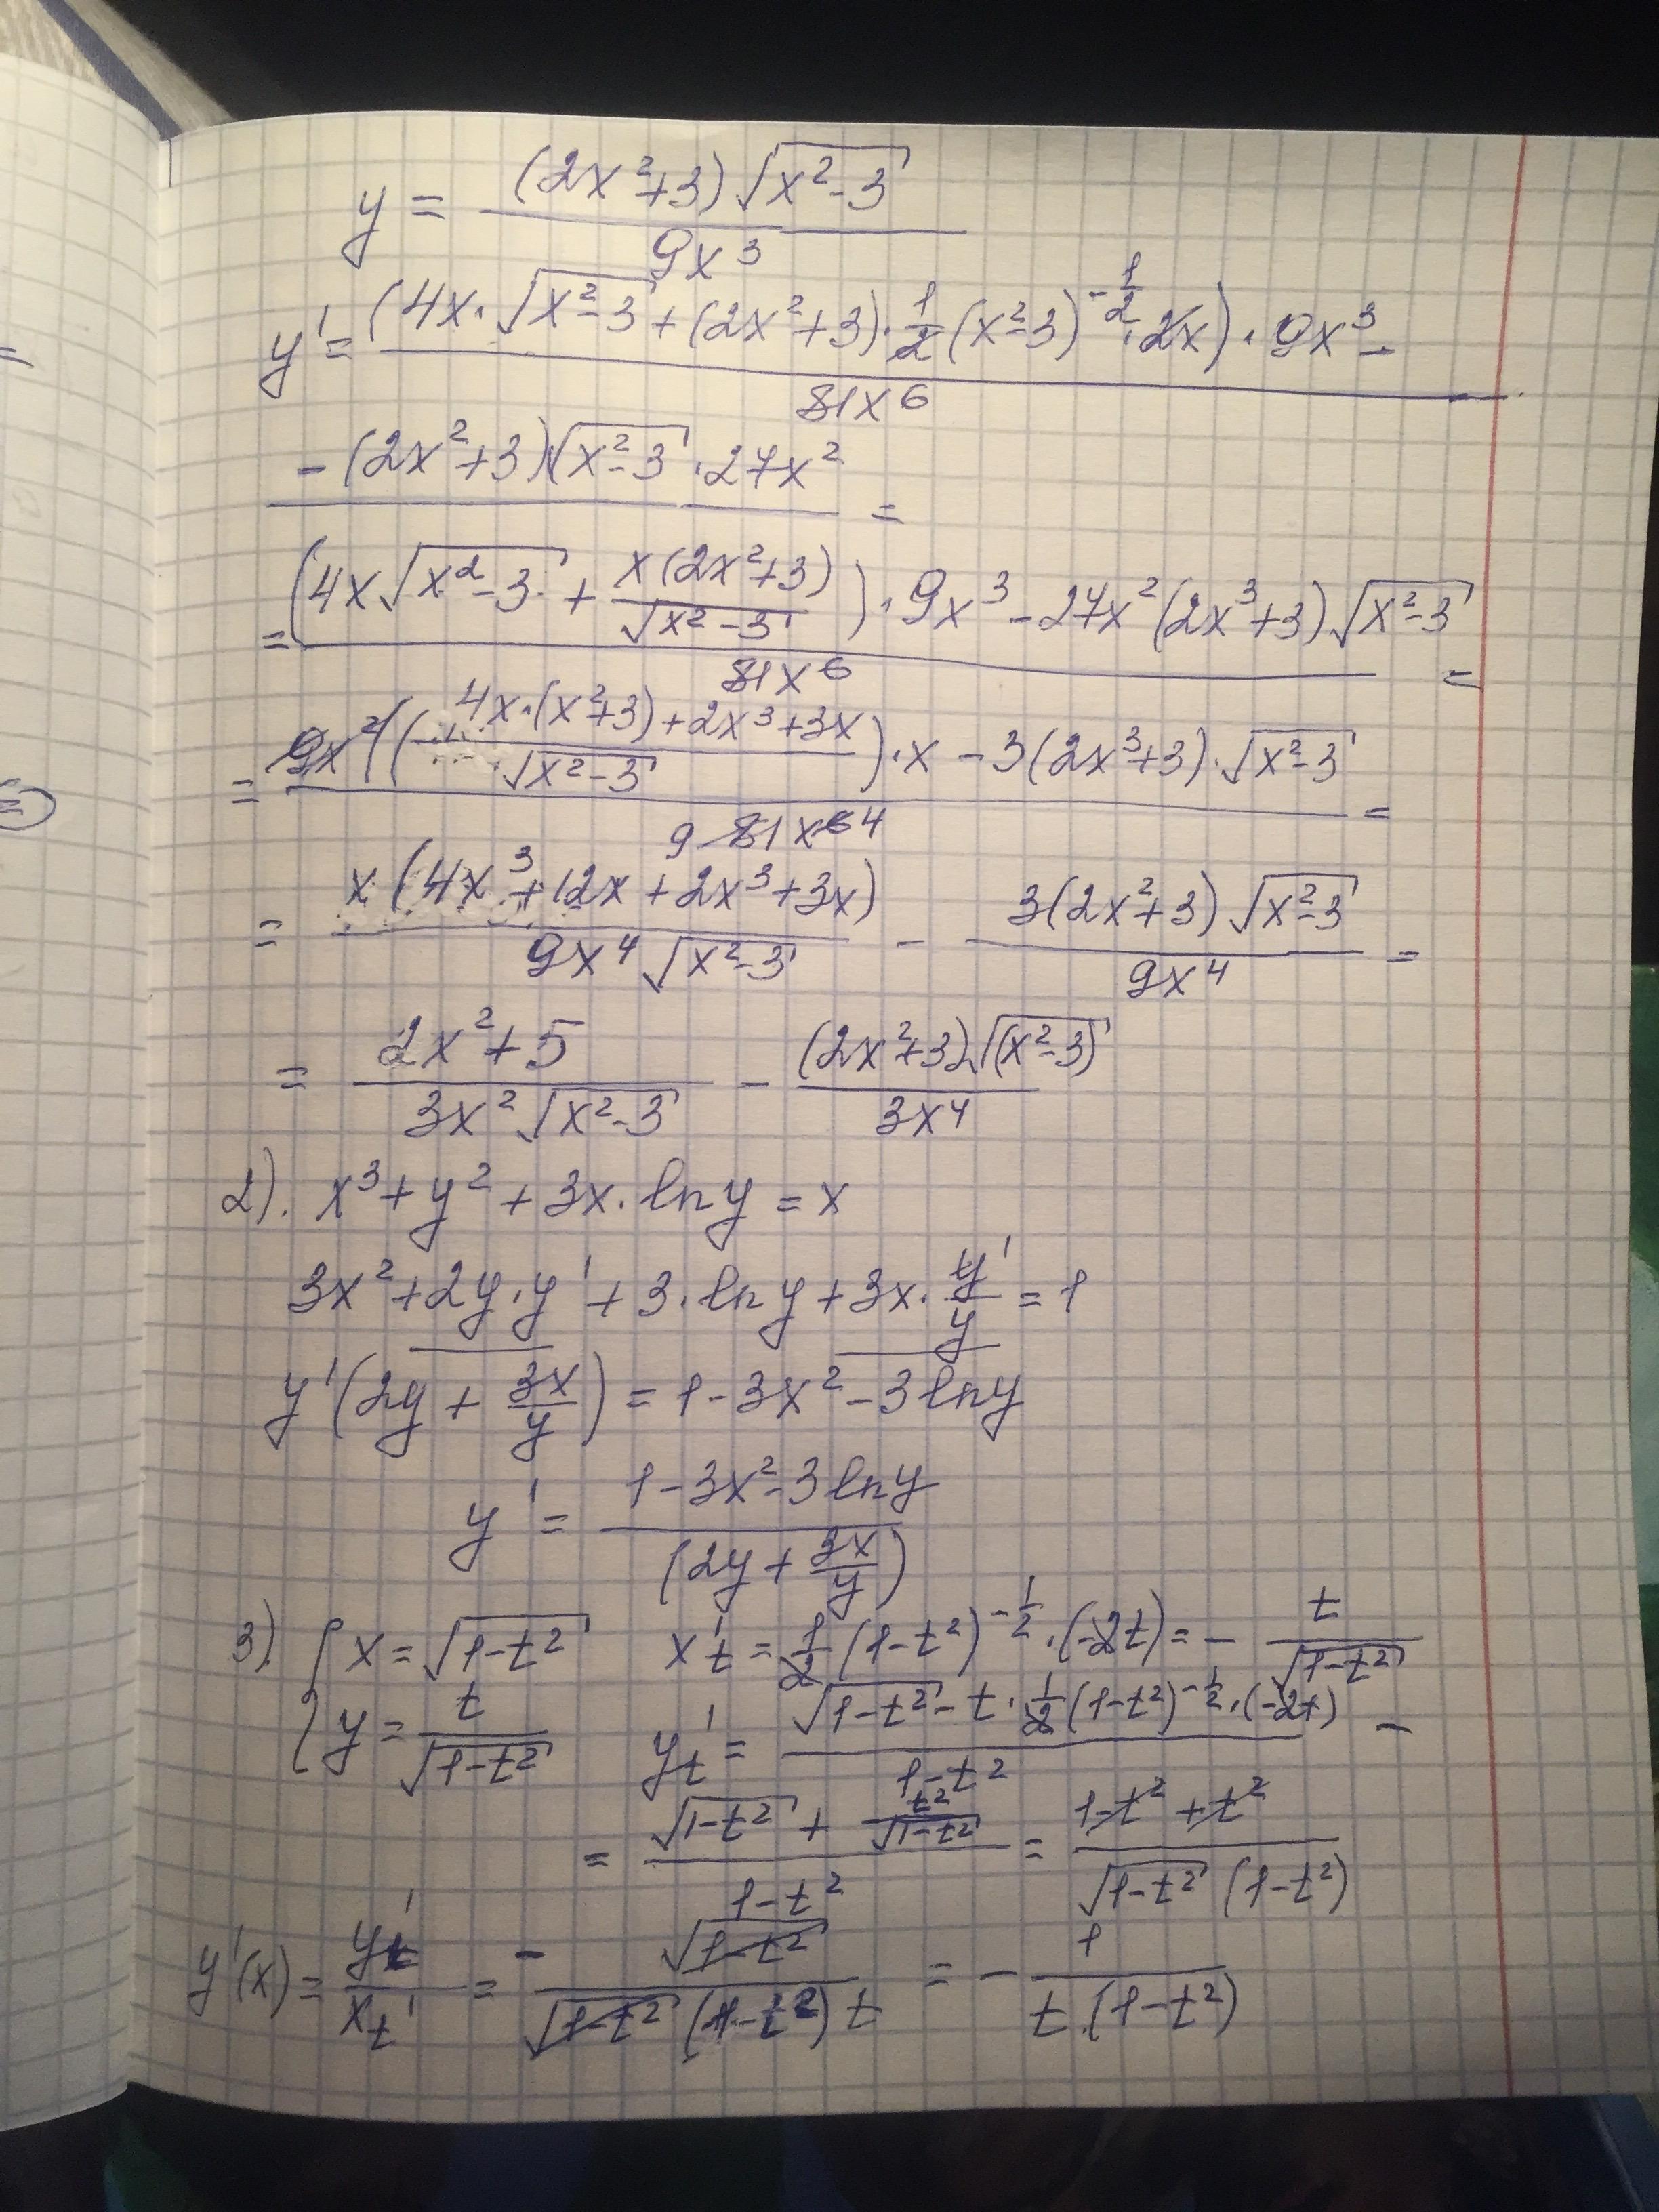 y = ((2x²+3)√(x²-3))/(9x³)
y' = ((4x·√(x²-3) + (2x²+3)·1/2(x²-3)^(-1/2)·2x)·9x³ -)/(81x⁶)
(-(2x²+3)√(x²-3)·27x²) =
= ((4x√(x²-3) + (x(2x²+3))/(√(x²-3)))·9x³ - 27x²(2x³+3)√(x²-3))/(81x⁶) =
= (9x²((4x·(x²+3)+2x³+3x)/(√(x²-3)))·x - 3(2x³+3)·√(x²-3))/(9 81x⁶ 4) =
= (x(4x³+12x+2x³+3x))/(9x⁴√(x²-3)) - (3(2x²+3)√(x²-3))/(9x⁴) =
= (2x²+5)/(3x²√(x²-3)) - ((2x²+3)√(x²-3))/(3x⁴)
2). x³+y²+3x·ln y = x
3x²+2y·y'+3·ln y+3x·y'/y = 1
y'(2y + 3x/y) = 1-3x²-3ln y
y' = (1-3x²-3ln y)/(2y + 3x/y)
3). { x = √(1-t²) x't = 1/2(1-t²)^(-1/2)·(-2t) = - t/√(1-t²)
y = t/√(1-t²) y't = (√(1-t²) - t·1/2(1-t²)^(-1/2)·(-2t))/(1-t²) -
= (√(1-t²) + t²/√(1-t²))/(1-t²) = (1-t²+t²)/(√(1-t²)(1-t²))
y'(x) = y't/xt' = - √(1-t²)/(√(1-t²)(1-t²)t) = - 1/(t·(1-t²))